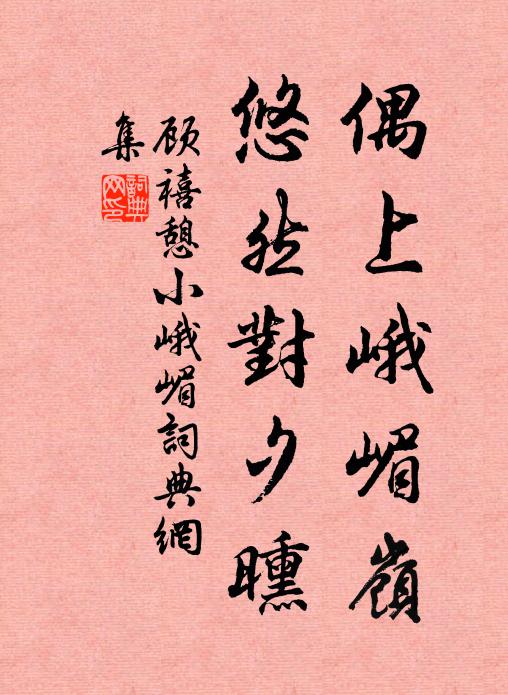 偶上峨嵋嶺
悠然對夕曛
顾禧憩小峨嵋詞典網
集
詞典网印